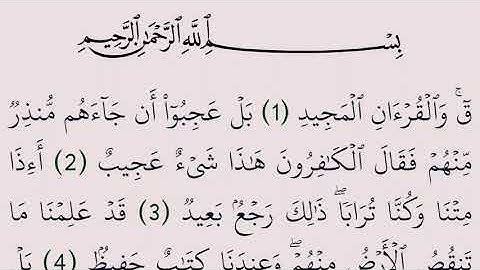 بِسْمِ ٱللَّهِ ٱلرَّحْمَٰنِ ٱلرَّحِيمِ
قٓ ۚ وَٱلْقُرْءَانِ ٱلْمَجِيدِ (1) بَلْ عَجِبُوٓا۟ أَن جَآءَهُم مُّنذِرٌ
مِّنْهُمْ فَقَالَ ٱلْكَٰفِرُونَ هَٰذَا شَىْءٌ عَجِيبٌ (2) أَءِذَا
مِتْنَا وَكُنَّا تُرَابًا ۖ ذَٰلِكَ رَجْعٌۢ بَعِيدٌ (3) قَدْ عَلِمْنَا مَا
تَنقُصُ ٱلْأَرْضُ مِنْهُمْ ۖ وَعِندَنَا كِتَٰبٌ حَفِيظٌۢ (4) بَلْ